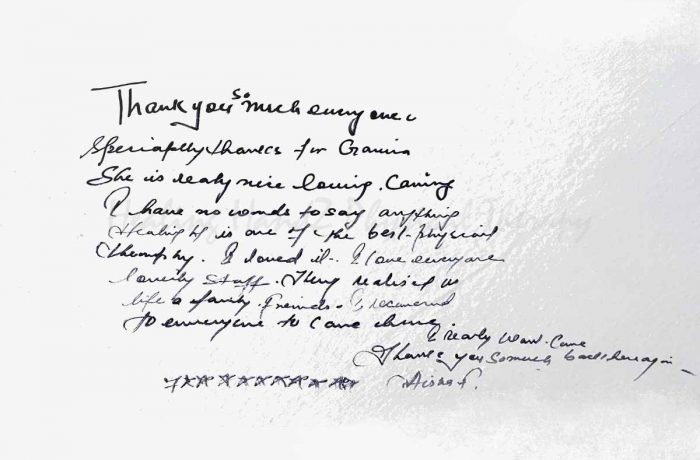 Thank you so much everyone.
Specially thanks for
She is realy nice loving. Caring
I have no words to say anything
Healing H is one of the best physical
therapy. I loved it. I love everyone
lovely staff. They realised us
like a family. Friends. I recomend
to everyone to come
I realy want come
Thanks you so much back here again
Aisha